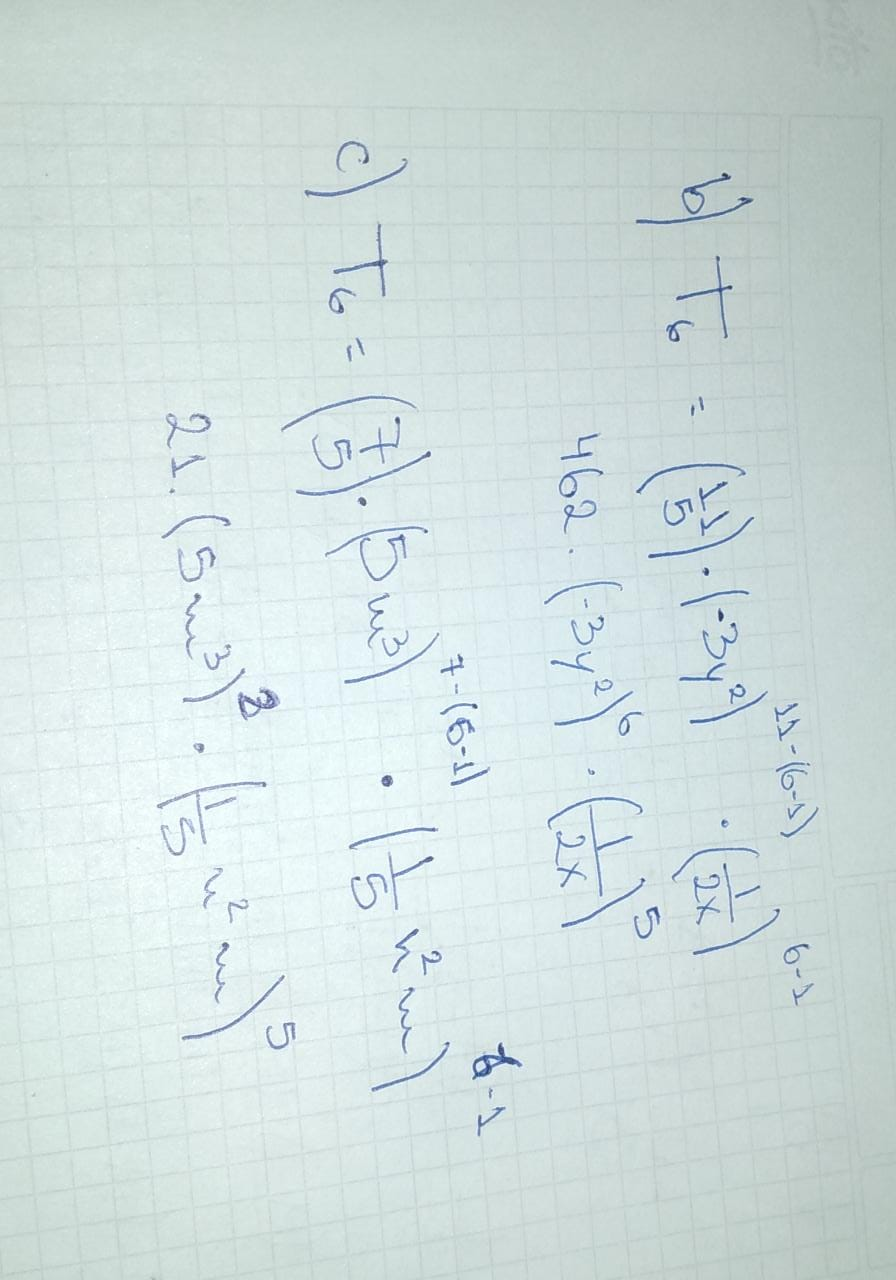 b) T₆ = (11 5) · (-3y²)¹¹⁻⁽⁶⁻¹⁾ · (1/2x)⁶⁻¹
462 · (-3y²)⁶ · (1/2x)⁵
c) T₆ = (7 5) · (5m³)⁷⁻⁽⁶⁻¹⁾ · (1/5 n²m)⁶⁻¹
21 · (5m³)² · (1/5 n²m)⁵